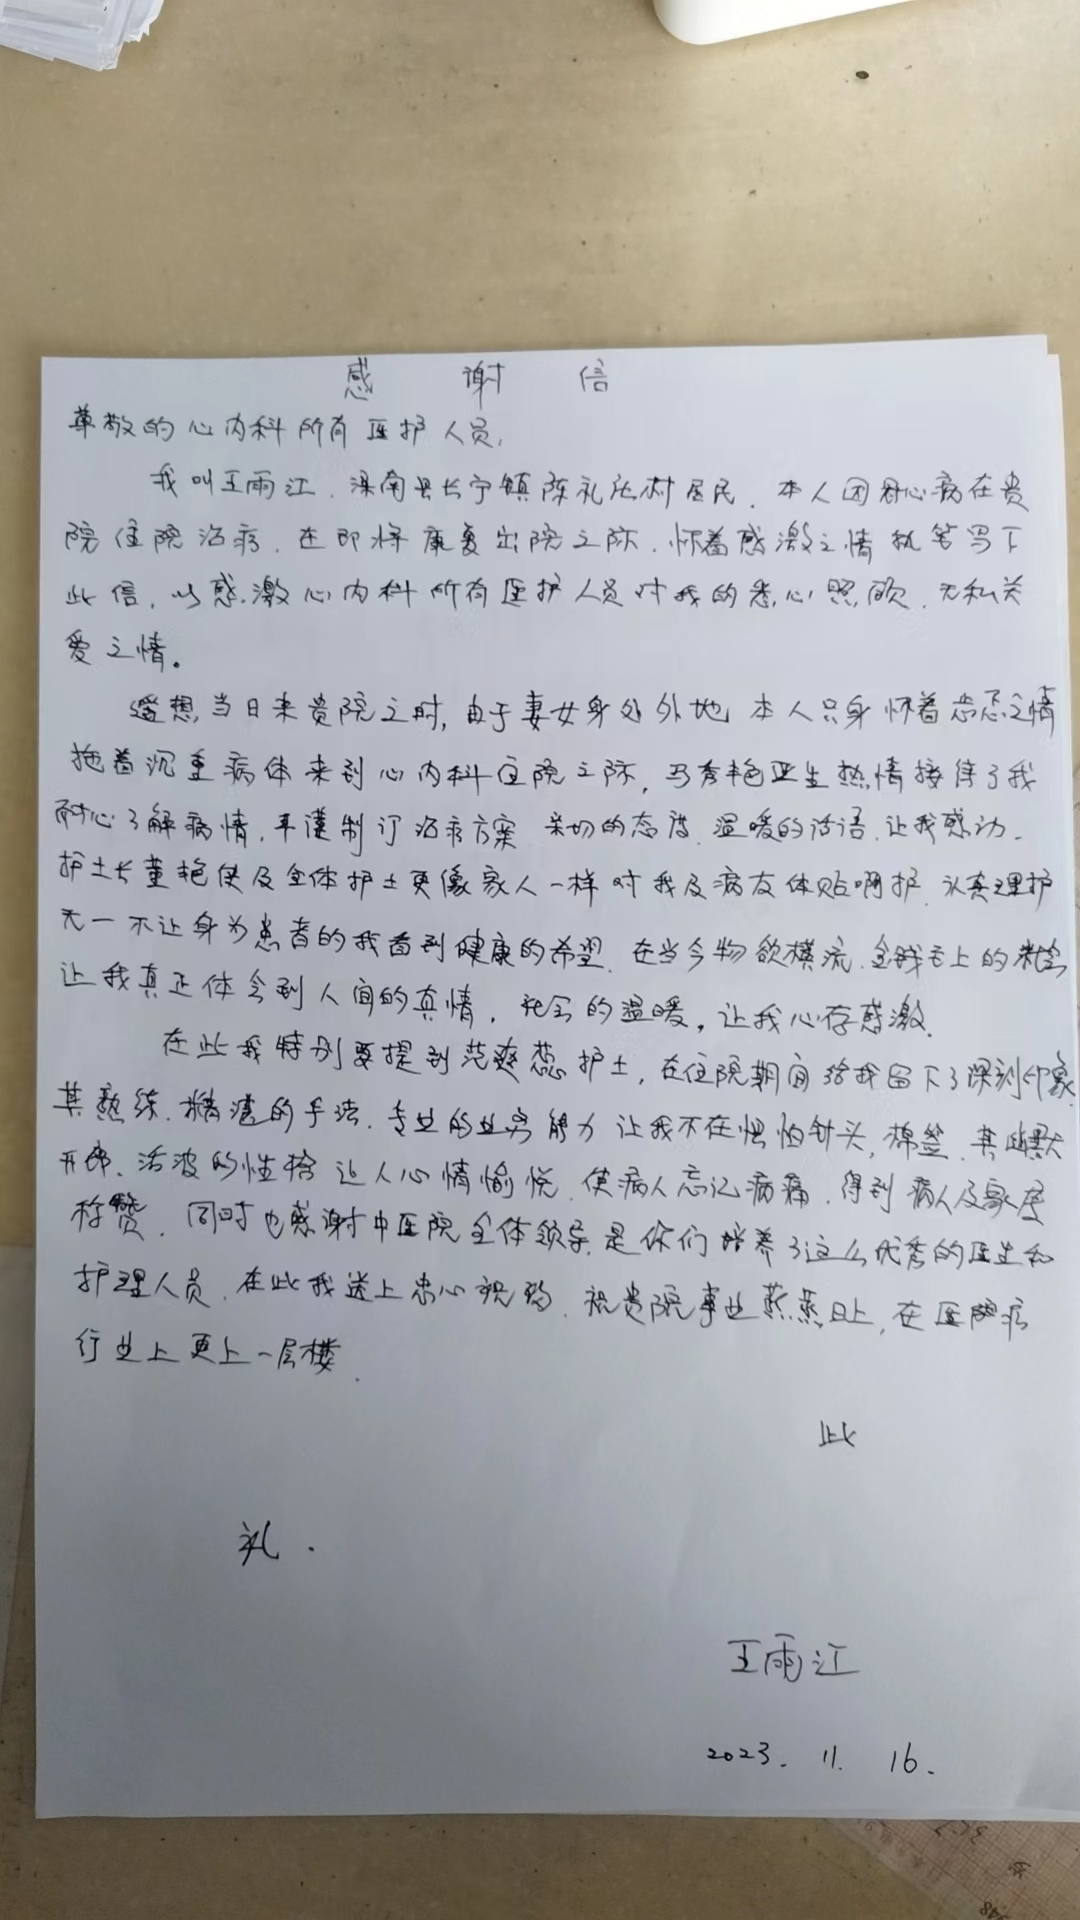 感 谢 信
尊敬的心内科所有医护人员,
我叫王雨江.滦南县长宁镇陈礼庄村居民.本人因冠心病在贵
院住院治疗.在即将康复出院之际.怀着感激之情执笔写下
此信.以感激心内科所有医护人员对我的悉心照顾.无私关
爱之情。
遥想当日来贵院之时,由于妻女身处外地 本人只身怀着忐忑之情
拖着沉重病体来到心内科住院之际,马秀艳医生热情接待了我
耐心了解病情.严谨制订治疗方案 亲切的态度.温暖的话语.让我感动.
护士长董艳侠及全体护士更像家人一样对我及病友体贴呵护.认真理护
无一不让身为患者的我看到健康的希望.在当今物欲横流.金钱至上的社会
让我真正体会到人间的真情,社会的温暖,让我心存感激.
在此我特别要提到范爽蕊护士,在住院期间给我留下了深刻印象
其熟练.精湛的手法.专业的业务能力让我不在惧怕针头,棉签.其幽默
开郎、活波的性格让人心情愉悦.使病人忘记病痛.得到病人及家属
称赞.同时也感谢中医院全体领导.是你们培养了这么优秀的医生和
护理人员.在此我送上忠心祝 .祝贵院事业蒸蒸日上,在医院
行业上更上一层楼.
此
礼.
王雨江
2023. 11. 16.